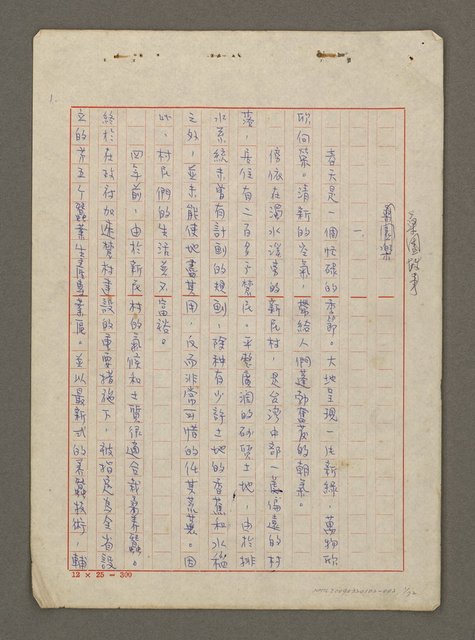 桑園故事
桑園樂
1.
一、
春天是一個忙碌的季節。大地呈現一片新綠，萬物欣
欣向榮。清新的空氣，帶給人們蓬勃奮發的朝氣。
傍依在濁水溪旁的新民村，是台灣中部一處偏遠的村
落，居住有二百多戶農民。平整廣濶的砂質土地，由於排
水系統未曾有計劃的規劃，除種有少許土地的香蕉和水稻
之外，並未能使地盡其用，反而非常可惜的任其荒蕪。因
此，村民們的生活並不富裕。
四年前，由於新民村的氣候和土質很適合栽桑養蠶。
終於在政府加速農村建設的重要措施下，被指定為全省設
立的第五個蠶業生產專業區。並以最新式的養蠶技術，輔
12 × 25 = 300